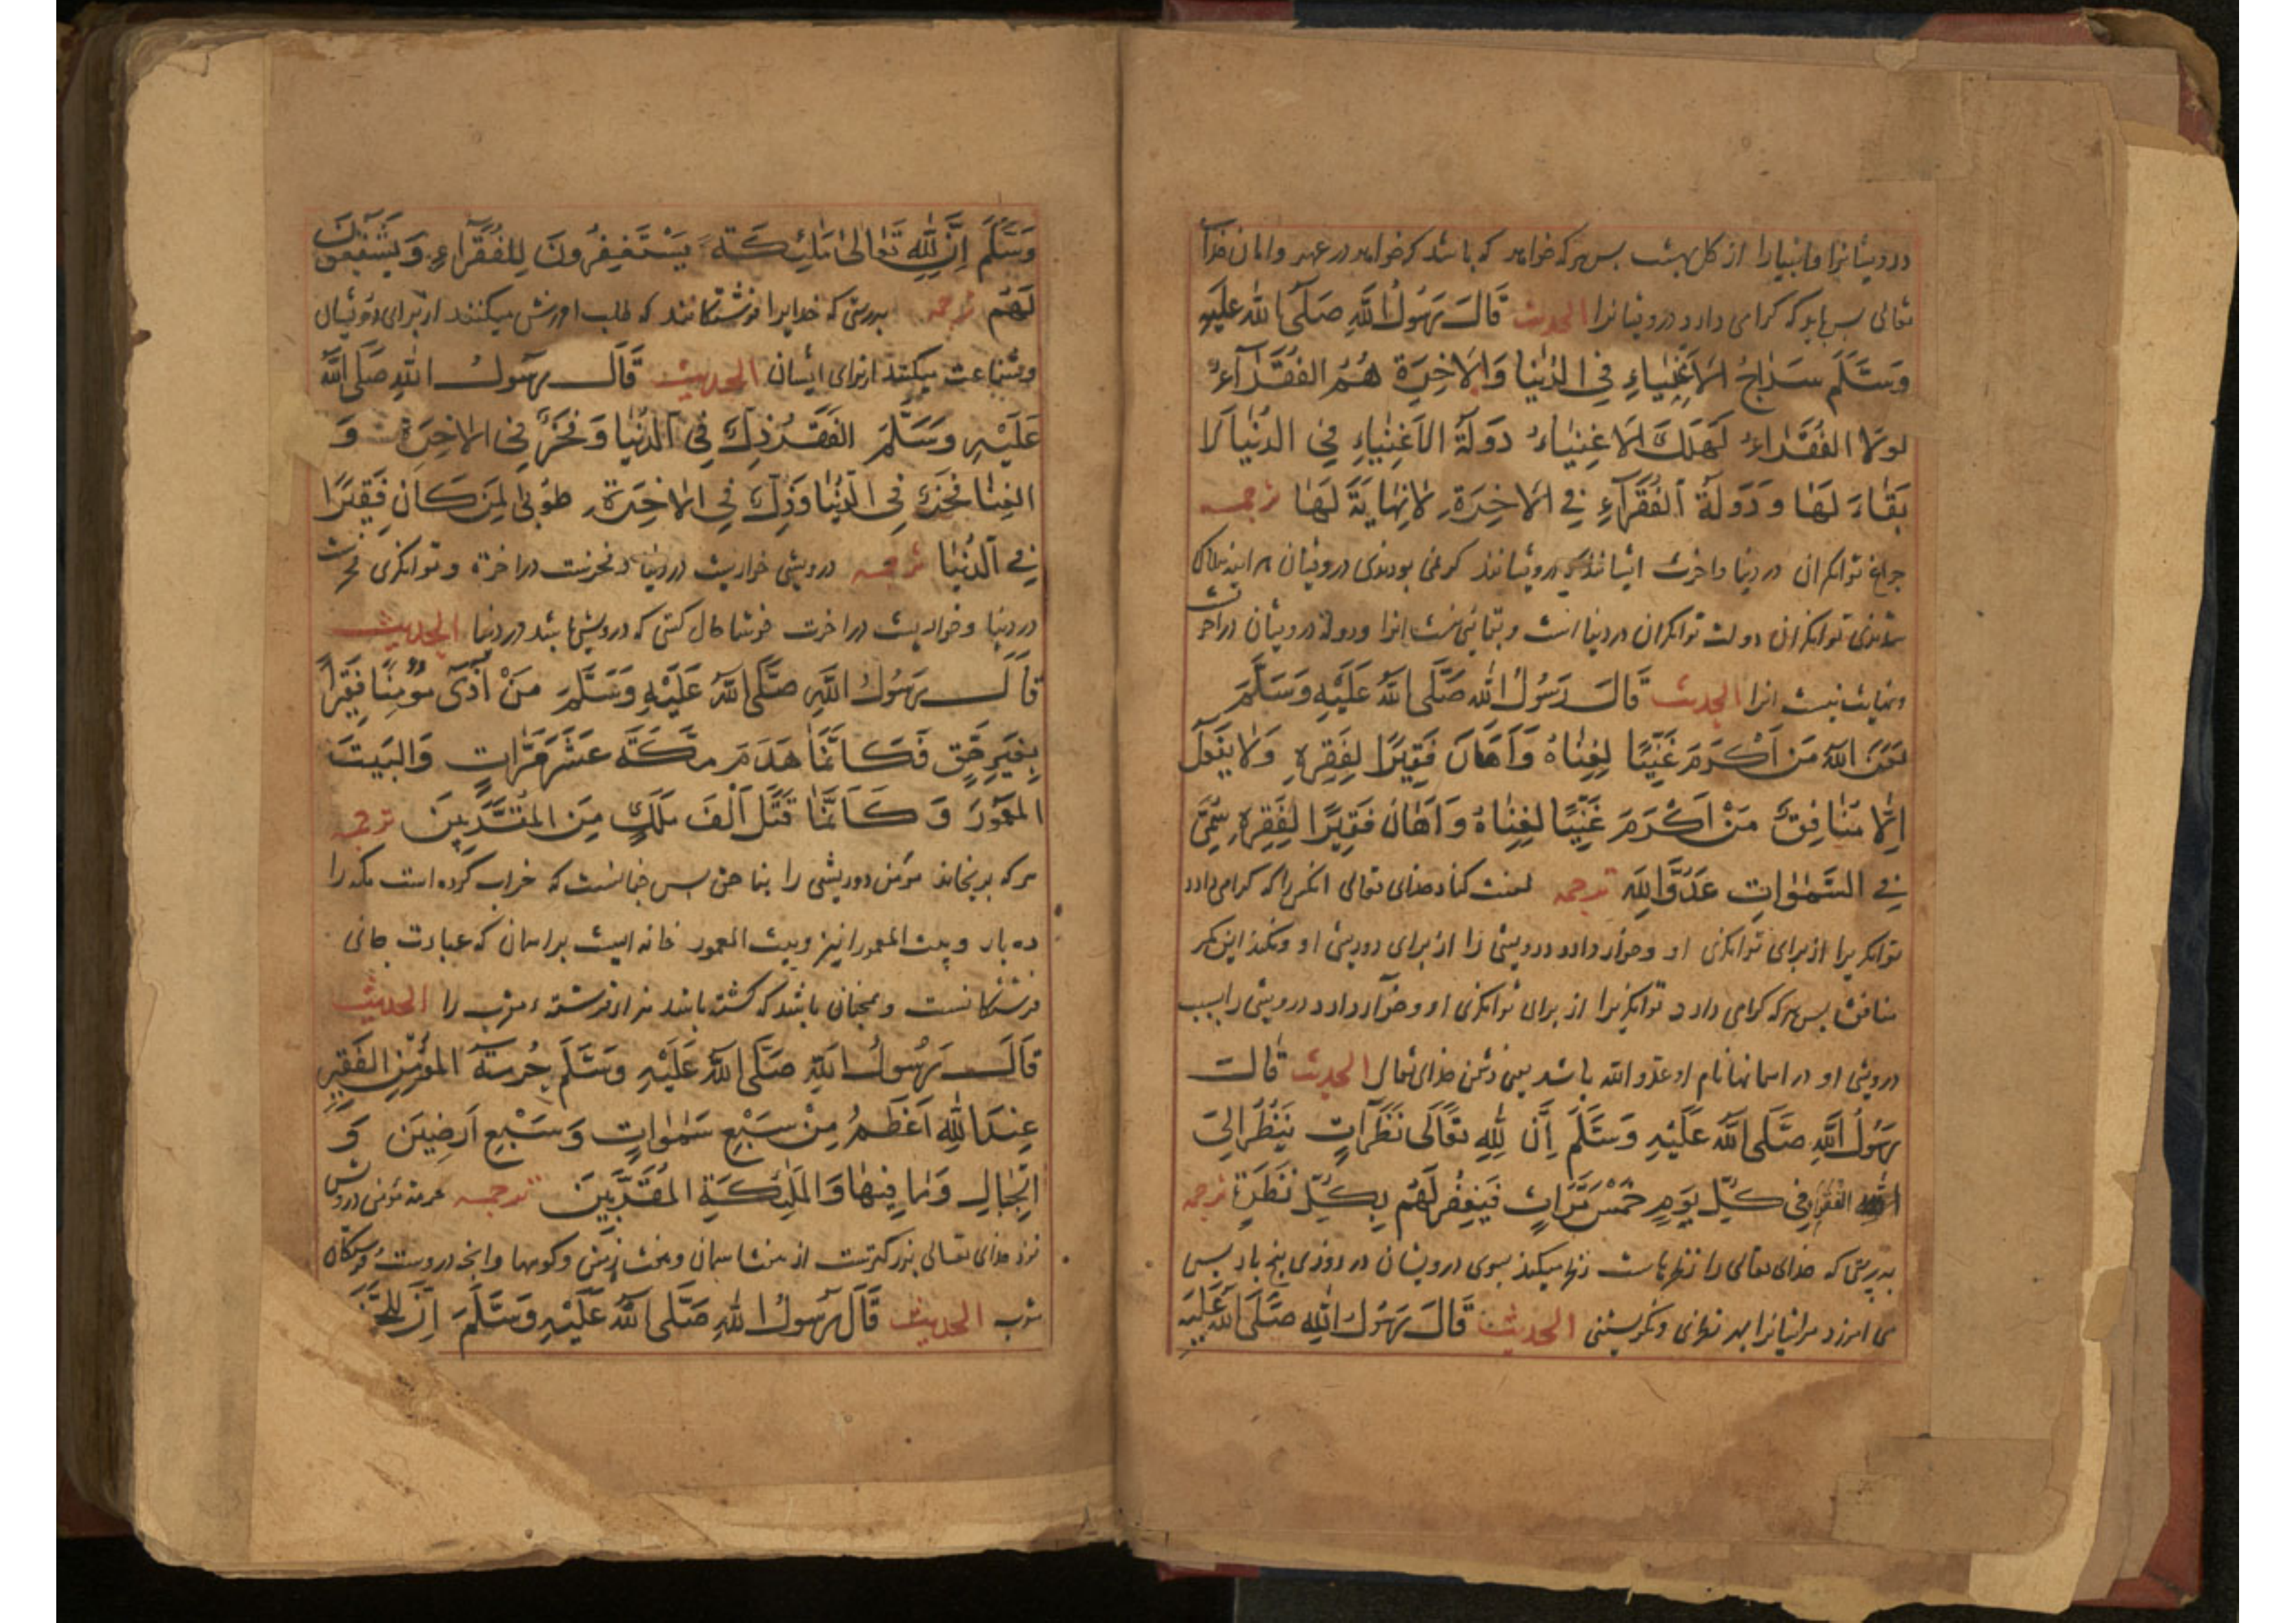 درویشانرا و انبیارا از کل بهشت پس هرکه خواهد که باشد که خواهد در عهد و امان خدا
تعالی پس باید که کرامی دارد درویشانرا الحدیث قَالَ رَسُولُ اللّٰهِ صَلَّى اللّٰهُ عَلَيْهِ
وَسَلَّمَ سِرَاجُ الْاَغْنِيَاءِ فِي الدُّنْيَا وَالْاٰخِرَةِ هُمُ الْفُقَرَآءُ
لَوْلَا الْفُقَرَاءُ لَهَلَكَ الْاَغْنِيَاءُ دَوْلَةُ الْاَغْنِيَاءِ فِي الدُّنْيَا لَا
بَقَاءَ لَهَا وَدَوْلَةُ الْفُقَرَآءِ فِي الْاٰخِرَةِ لَا نِهَايَةَ لَهَا ترجمه
چراغ توانکران در دنیا و اخرت ایشانند درویشانند کرنمی بودندی درویشان هر اینه هلاک
شدندی توانکران دولت توانکران در دنیا است و بقائی نیست انرا و دولة درویشان در اخرت
و نهایت نیست انرا الحدیث قَالَ رَسُولُ اللّٰهِ صَلَّى اللّٰهُ عَلَيْهِ وَسَلَّمَ
لَعَنَ اللّٰهُ مَنْ اَكْرَمَ غَنِيًّا لِغِنَاهُ وَاَهَانَ فَقِيرًا لِفَقْرِهِ وَلَا يَفْعَلُ
اِلَّا مُنَافِقٌ مَنْ اَكْرَمَ غَنِيًّا لِغِنَاهُ وَاَهَانَ فَقِيرًا لِفَقْرِهِ سُمِّيَ
فِي السَّمٰوَاتِ عَدُوَّ اللّٰهِ ترجمه لعنت کناد خدای تعالی انکس را که کرامی دارد
توانکریرا از برای توانکری او و خوار دارد درویشی را از برای درویشی او و نکند این مکر
منافق پس هرکه کرامی دارد توانکریرا از برای توانکری او و خوار دارد درویشی را بسبب
درویشی او در اسمانها نام او عدو الله باشد یعنی دشمن خدای تعالی الحدیث قَالَ
رَسُولُ اللّٰهِ صَلَّى اللّٰهُ عَلَيْهِ وَسَلَّمَ اِنَّ لِلّٰهِ تَعَالَى نَظَرَاتٍ يَنْظُرُ اِلَى
الْفُقَرَآءِ فِي كُلِّ يَوْمٍ خَمْسَ مَرَّاتٍ فَيَغْفِرُ لَهُمْ بِكُلِّ نَظَرَةٍ ترجمه
بدرستی که خدای تعالی را نظرهاست نظر میکند بسوی درویشان در روزی پنج بار پس
می امرزد مر ایشانرا بهر نظری و نکریستنی الحدیث قَالَ رَسُولُ اللّٰهِ صَلَّى اللّٰهُ عَلَيْهِ
وَسَلَّمَ اِنَّ لِلّٰهِ تَعَالٰى مَلٰئِكَةً يَسْتَغْفِرُونَ لِلْفُقَرَآءِ وَيَشْفَعُونَ
لَهُمْ ترجمه بدرستی که خدایرا فرشتکانند که طلب امرزش میکنند از برای درویشان
و شفاعت میکنند از برای ایشان الحدیث قَالَ رَسُولُ اللّٰهِ صَلَّى اللّٰهُ
عَلَيْهِ وَسَلَّمَ الْفَقْرُ ذِلٌّ فِي الدُّنْيَا وَفَخْرٌ فِي الْاٰخِرَةِ وَ
الْغِنَا فَخْرٌ فِي الدُّنْيَا وَذِلٌّ فِي الْاٰخِرَةِ طُوبٰى لِمَنْ كَانَ فَقِيرًا
فِي الدُّنْيَا ترجمه درویشی خواریست در دنیا و فخرست در اخرة و توانکری فخرست
در دنیا و خواریست در اخرت خوشا حال کسی که درویش باشد در دنیا الحدیث
قَالَ رَسُولُ اللّٰهِ صَلَّى اللّٰهُ عَلَيْهِ وَسَلَّمَ مَنْ اٰذٰى مُؤْمِنًا فَقِيرًا
بِغَيْرِ حَقٍّ فَكَاَنَّمَا هَدَمَ مَكَّةَ عَشَرَ مَرَّاتٍ وَالْبَيْتَ
الْمَعْمُورَ وَكَاَنَّمَا قَتَلَ اَلْفَ مَلَكٍ مِنَ الْمُقَرَّبِينَ ترجمه
هرکه برنجاند مؤمن درویشی را بنا حق پس چنانست که خراب کرده است مکه را
ده بار و بیت المعمور را نیز و بیت المعمور خانه ایست بر اسمان که عبادت جای
فرشتکانست و همچنان باشد که کشته باشد هزار فرشته مقرب را الحدیث
قَالَ رَسُولُ اللّٰهِ صَلَّى اللّٰهُ عَلَيْهِ وَسَلَّمَ حُرْمَةُ الْمُؤْمِنِ الْفَقِيرِ
عِنْدَ اللّٰهِ اَعْظَمُ مِنْ سَبْعِ سَمٰوَاتٍ وَسَبْعِ اَرَضِينَ وَ
الْجِبَالِ وَمَا فِيهَا وَالْمَلٰئِكَةِ الْمُقَرَّبِينَ ترجمه حرمة مؤمن درویش
نزد خدای تعالی بزرکترست از هفت اسمان و هفت زمین و کوهها و انچه دروست و فرشتکان
مقرب الحدیث قَالَ رَسُولُ اللّٰهِ صَلَّى اللّٰهُ عَلَيْهِ وَسَلَّمَ اِنَّ